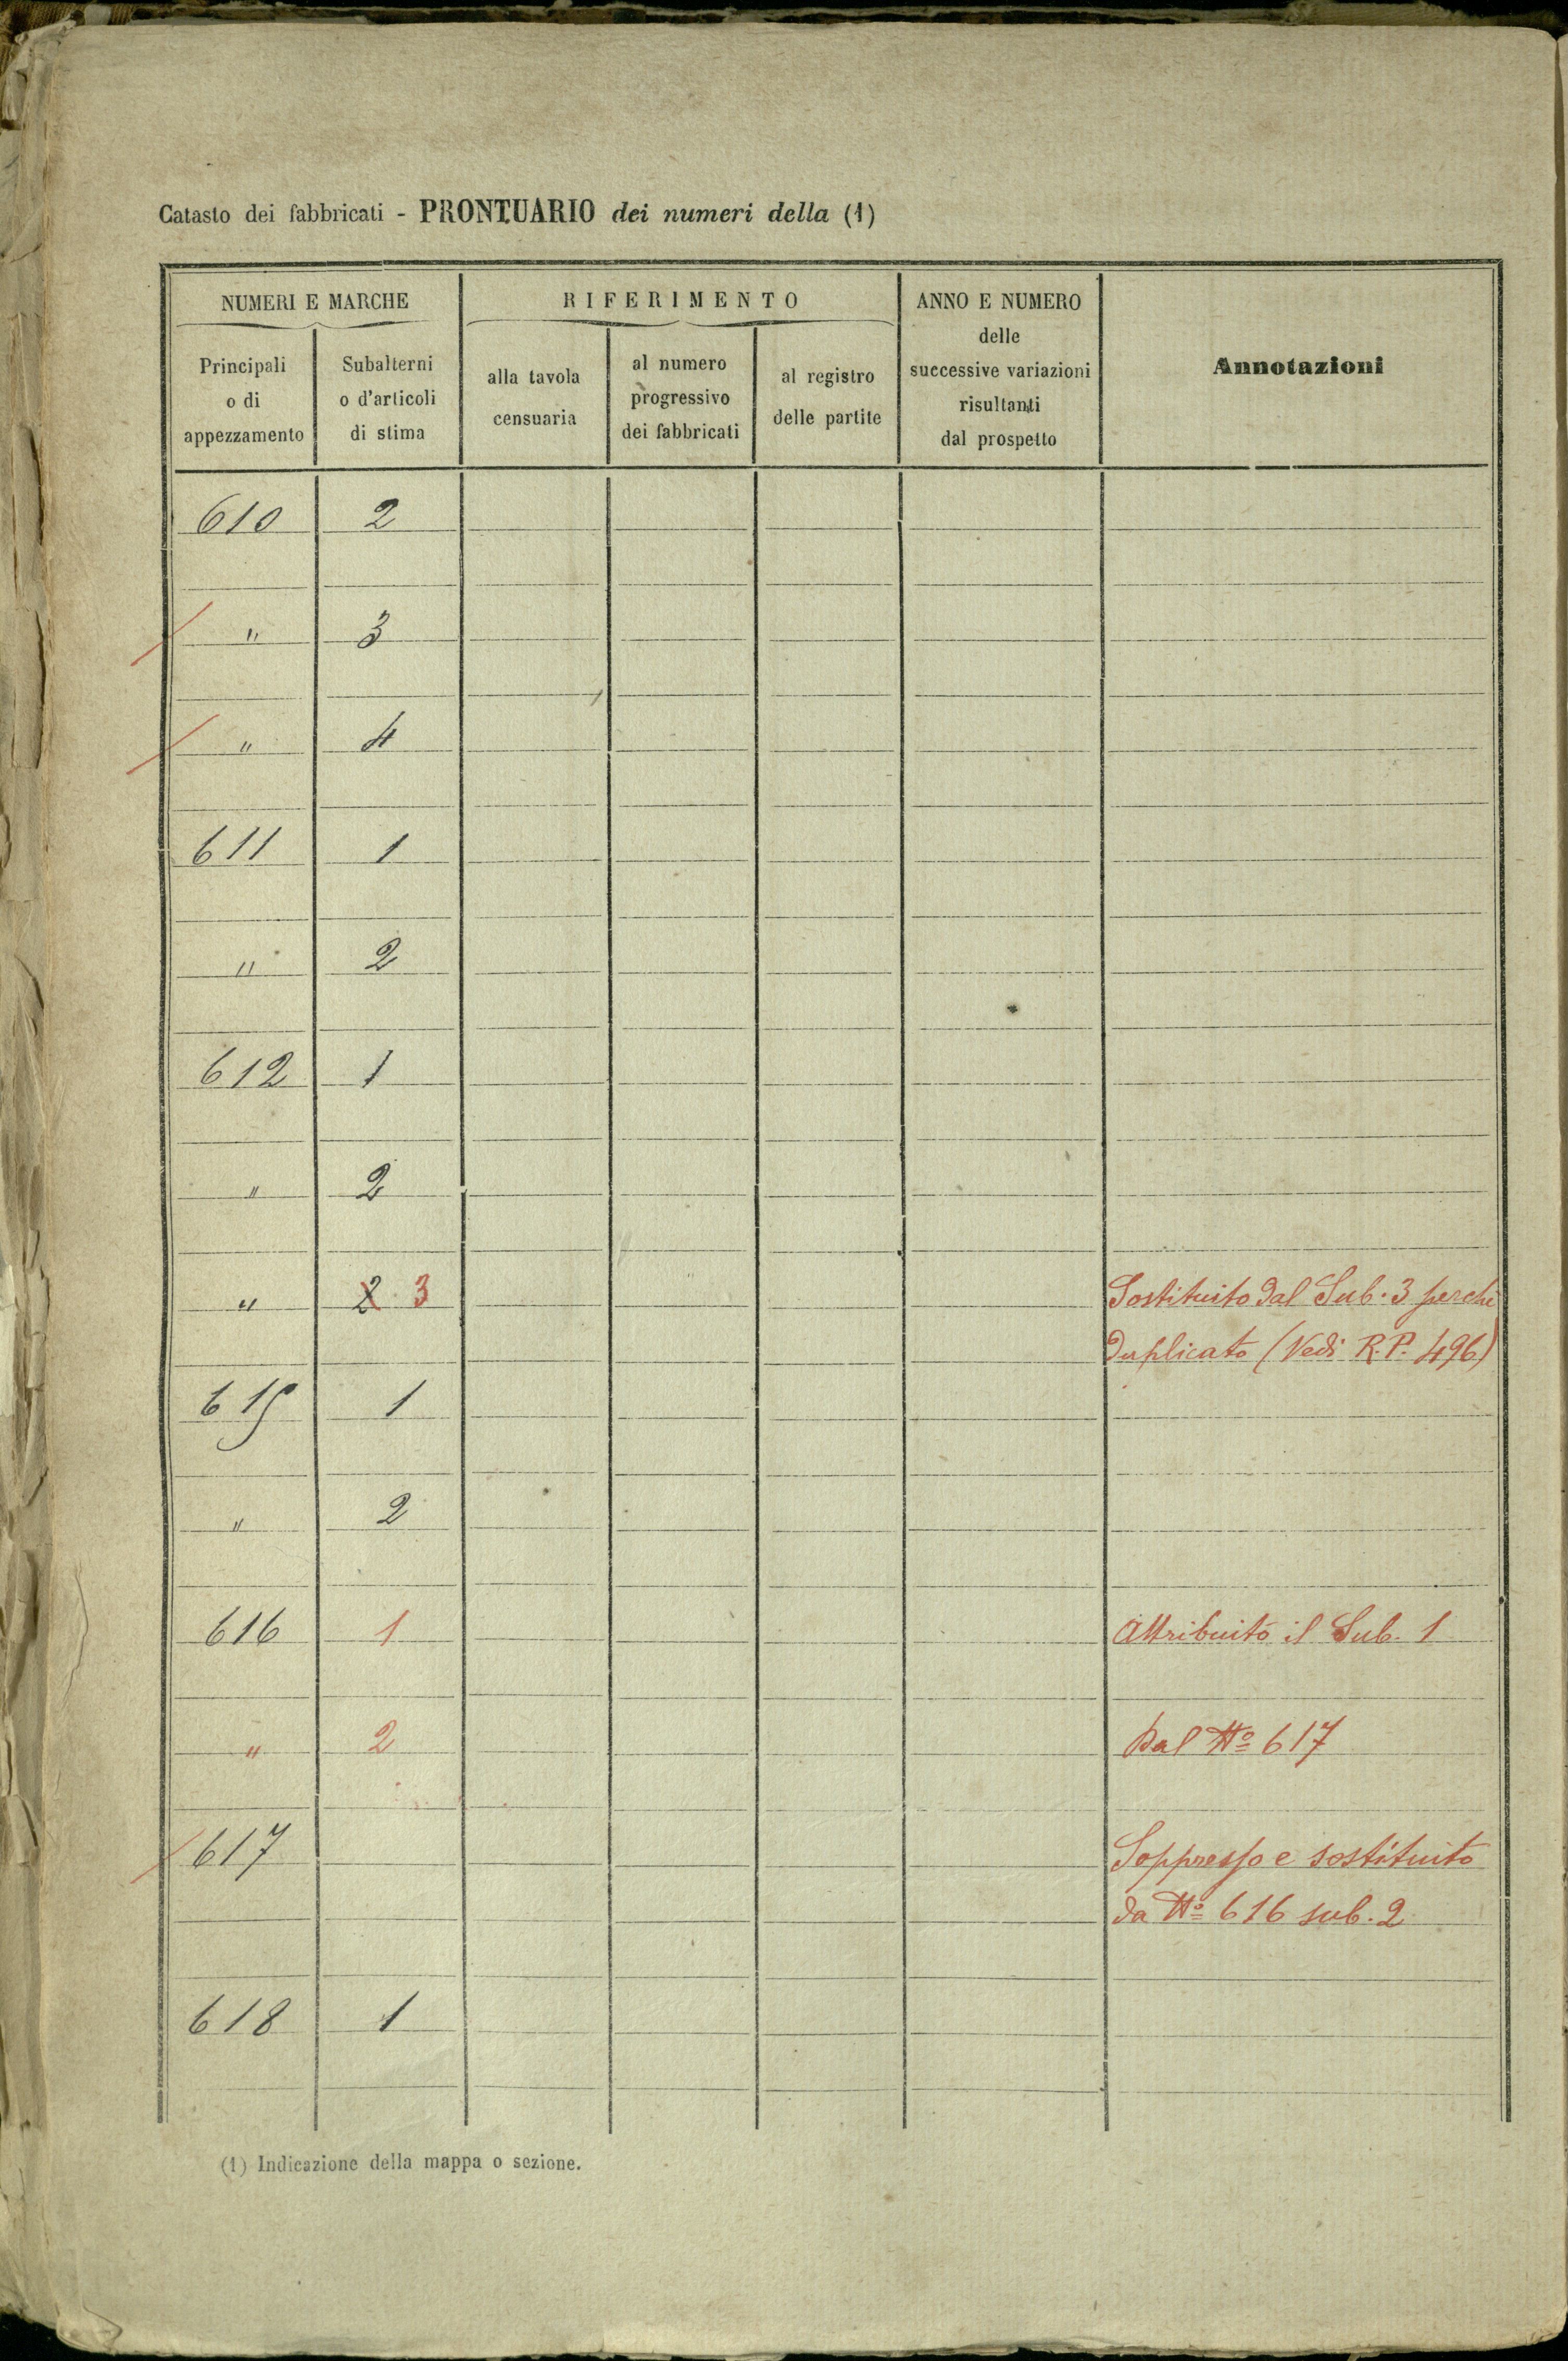 Catasto dei fabbricati - PRONTUARIO dei numeri della (1)
NUMERI E MARCHE
RIFERIMENTO
ANNO E NUMERO
delle
successive variazioni
risultanti
dal prospetto
Annotazioni
Principali
o di
appezzamento
Subalterni
o d'articoli
di stima
alla tavola
censuaria
al numero
progressivo
dei fabbricati
al registro
delle partite
610 2
" 3
" 4
611 1
" 2
612 1
" 2
" 2 3 Sostituito dal Sub. 3 perchè
duplicato (Vedi R.P. 496)
615 1
" 2
616 1 Attribuito il Sub. 1
" 2 Dal Nº 617
617 Soppresso e sostituito
da Nº 616 sub. 2
618 1
(1) Indicazione della mappa o sezione.